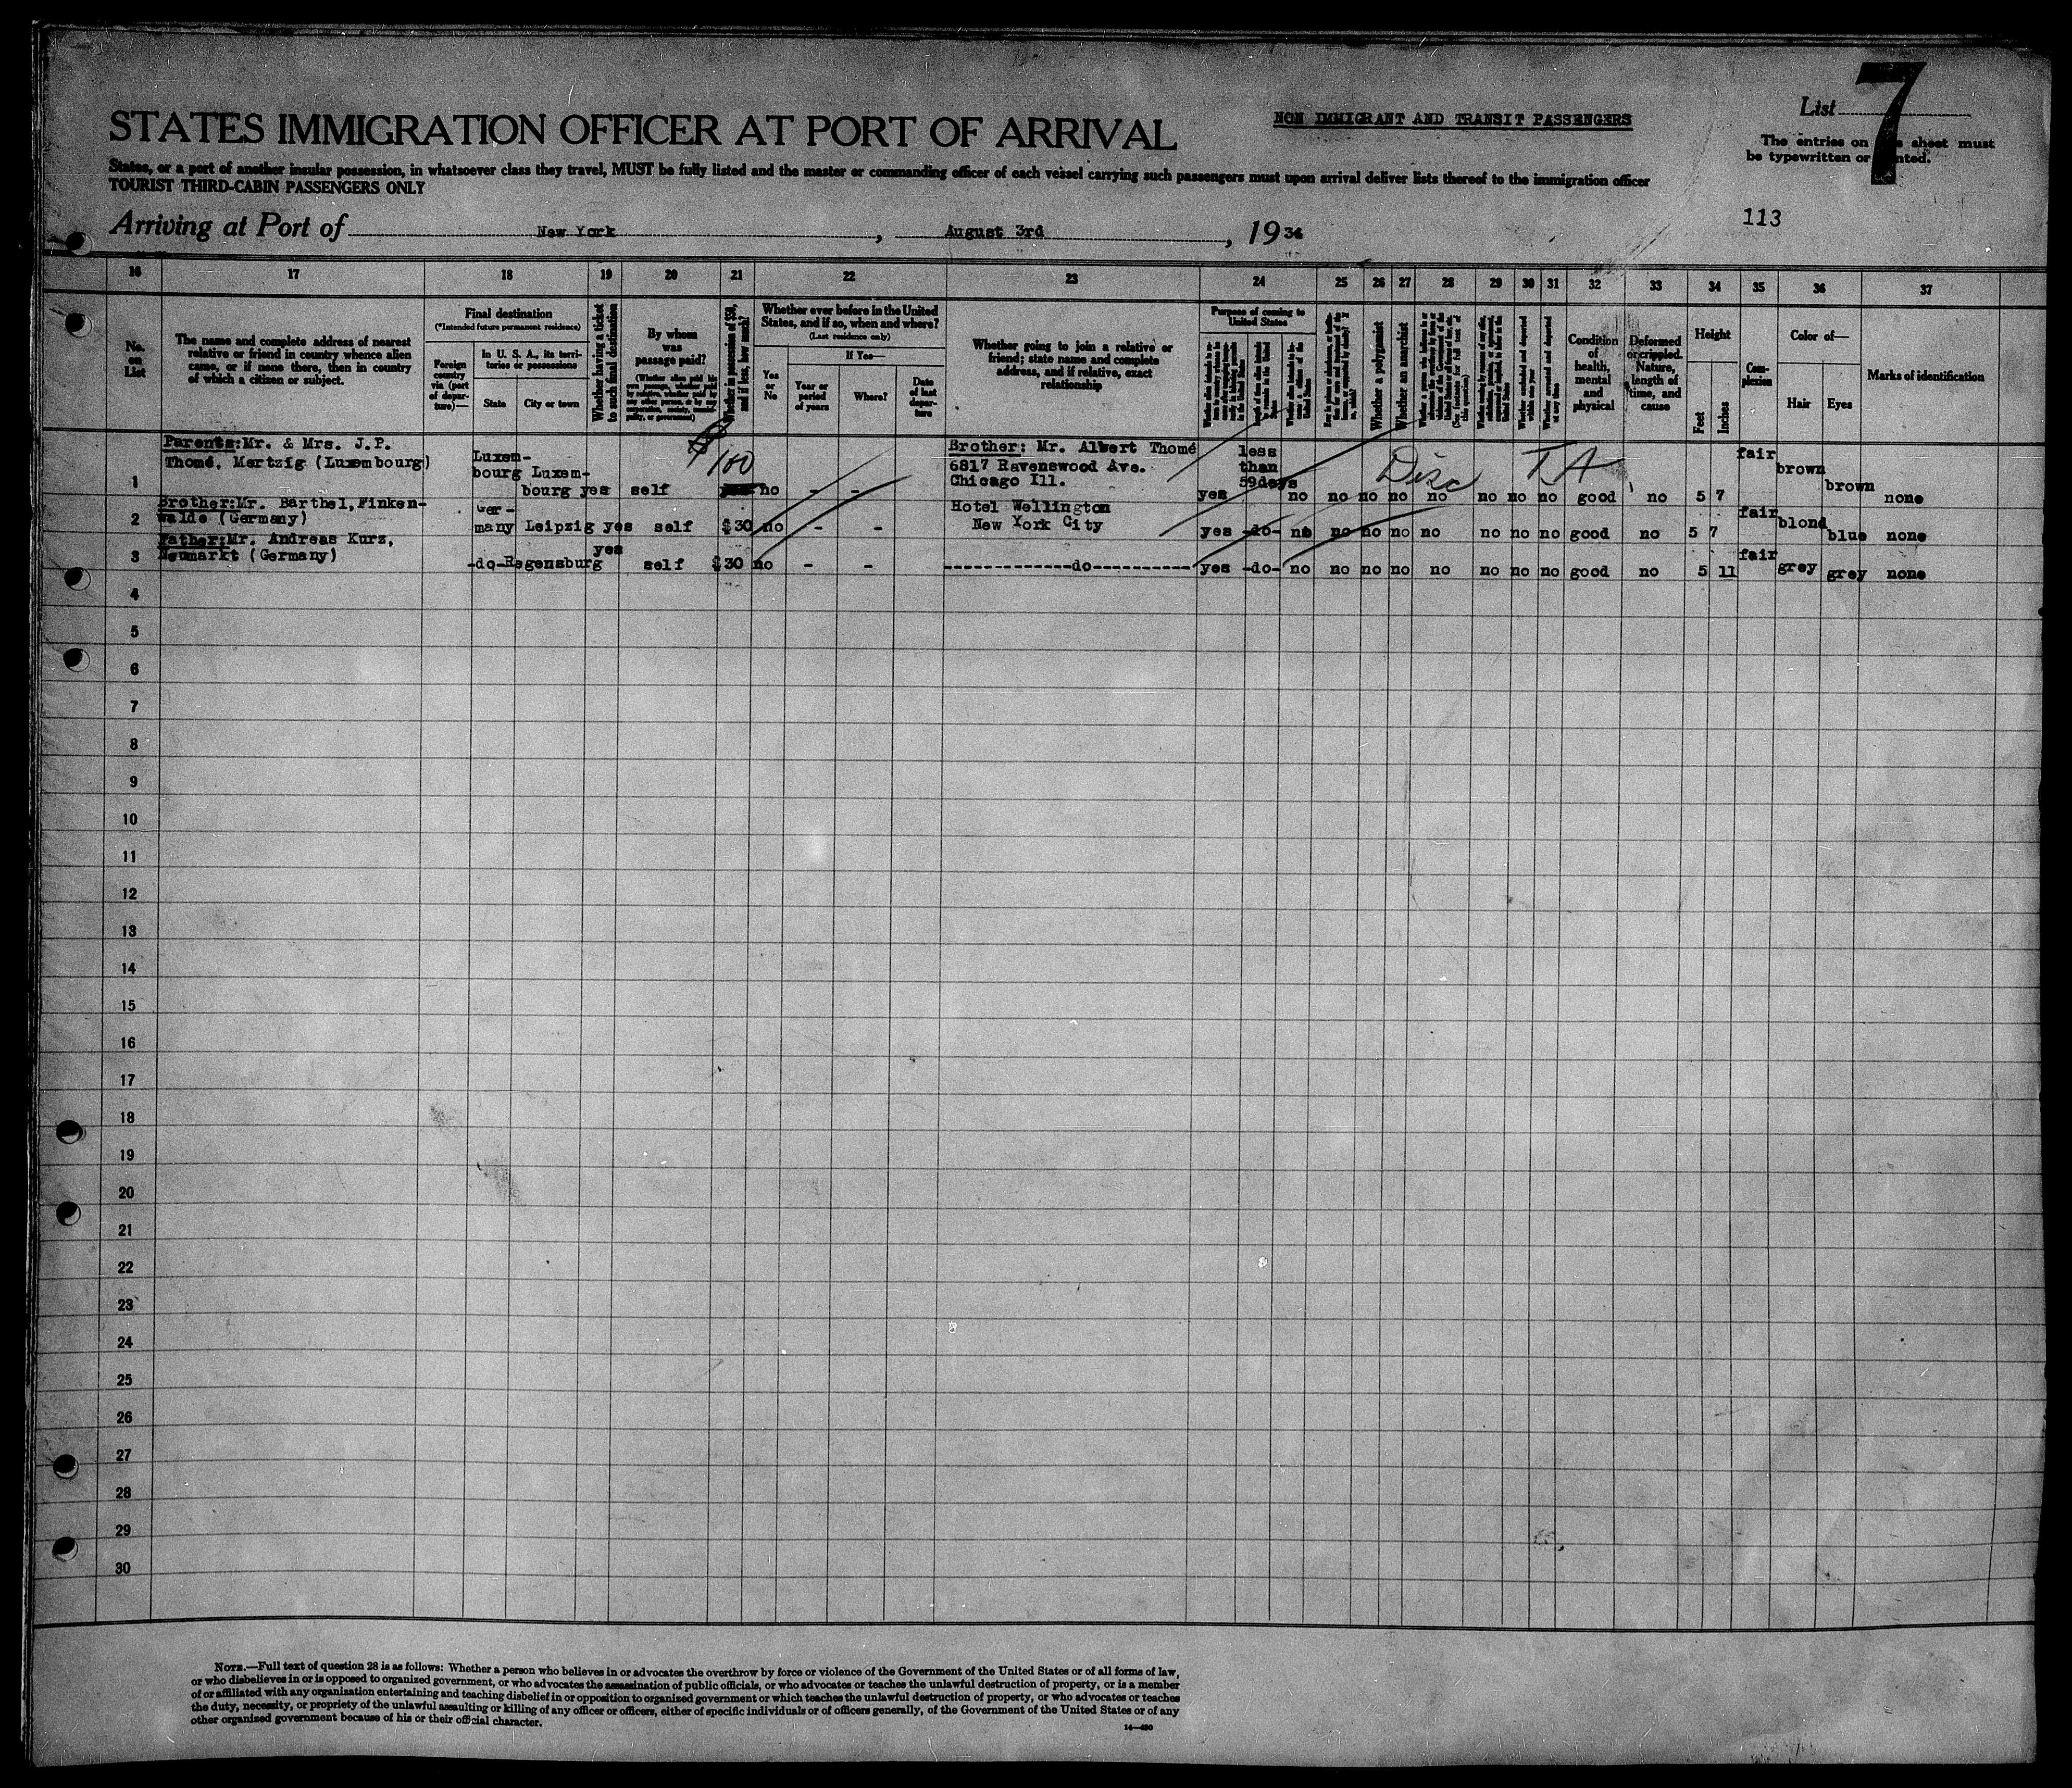 7
List
STATES IMMIGRATION OFFICER AT PORT OF ARRIVAL
NON IMMIGRANT AND TRANSIT PASSENGERS
The entries on sheet must
be typewritten or
States, or a port of another insular possession, in whatsoever class they travel, MUST be fully listed and the master or commanding officer of each vessel carrying such passengers must upon arrival deliver lists thereof to the immigration officer
TOURIST THIRD-CABIN PASSENGERS ONLY
113
Arriving at Port of New York, August 3rd, 1934
16 17 18 19 20 21 22 23 24 25 26 27 28 29 30 31 32 33 34 35 36 37
No. on List
The name and complete address of nearest
relative or friend in country whence alien
came, or if none there, then in country
of which a citizen or subject.
Final destination
(*Intended future permanent residence)
Foreign country via (port of departure)—
In U. S. A., its territories or possessions
State
City or town
Whether having a ticket to such final destination
By whom was passage paid?
Whether in possession of $50, and if less, how much?
Whether ever before in the United
States, and if so, when and where?
(Last residence only)
Yes or No
If Yes—
Year or period of years
Where?
Date of last departure
Whether going to join a relative or
friend; state name and complete
address, and if relative, exact
relationship
Purpose of coming to United States
Whether a polygamist
Whether an anarchist
Condition of health, mental and physical
Deformed or crippled. Nature, length of time, and cause
Height
Feet
Inches
Complexion
Color of—
Hair
Eyes
Marks of identification
$100
Disc T A
1 Parents: Mr. & Mrs. J.P.
Thomé, Mertzig (Luxembourg)
Luxem-
bourg Luxem-
bourg yes self no - -
Brother: Mr. Albert Thomé
6817 Ravenswood Ave.
Chicago Ill.
yes less
than
59days no no no no no no no no good no 5 7 fair brown brown none
2 Brother: Mr. Barthel, Finken-
walde (Germany)
Ger-
many Leipzig yes self $30 no - -
Hotel Wellington
New York City
yes -do- no no no no no no no no good no 5 7 fair blond blue none
3 Father: Mr. Andreas Kurz,
Neumarkt (Germany)
-do- Regensburg yes self $30 no - -
------------do----------
yes -do- no no no no no no no no good no 5 11 fair grey grey none
4
5
6
7
8
9
10
11
12
13
14
15
16
17
18
19
20
21
22
23
24
25
26
27
28
29
30
NOTE.—Full text of question 28 is as follows: Whether a person who believes in or advocates the overthrow by force or violence of the Government of the United States or of all forms of law,
or who disbelieves in or is opposed to organized government, or who advocates the assassination of public officials, or who advocates or teaches the unlawful destruction of property, or is a member
of or affiliated with any organization entertaining and teaching disbelief in or opposition to organized government or which teaches the unlawful destruction of property, or who advocates or teaches
the duty, necessity, or propriety of the unlawful assaulting or killing of any officer or officers, either of specific individuals or of officers generally, of the Government of the United States or of any
other organized government because of his or their official character.